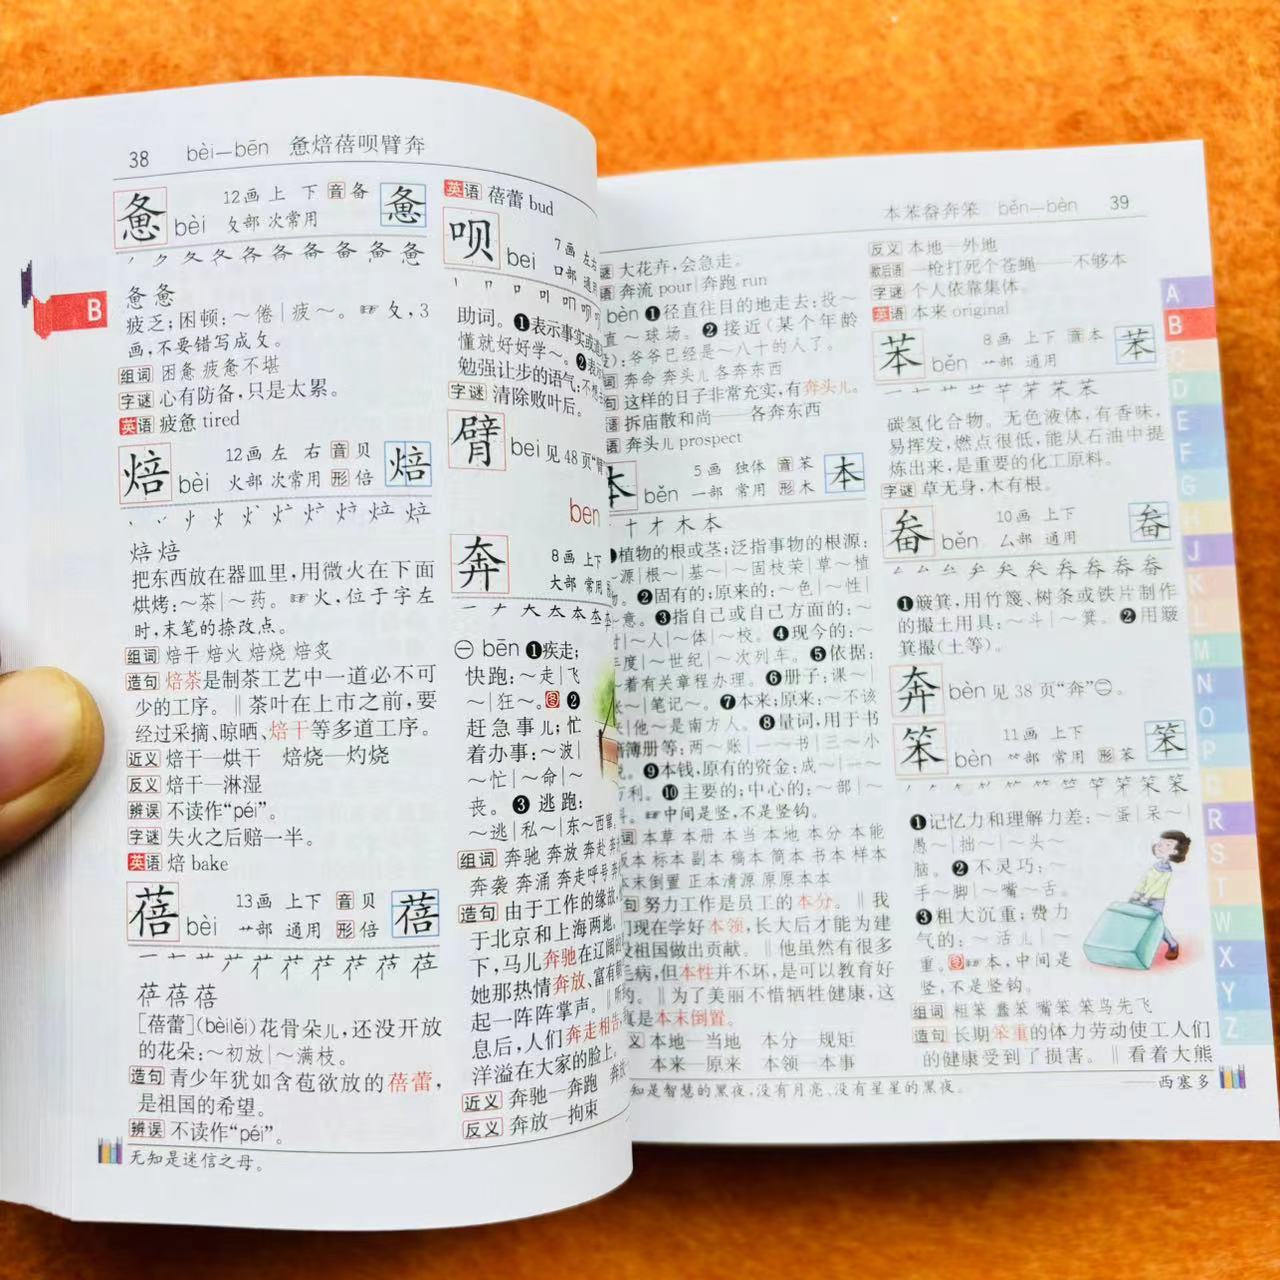 38 bèi—bēn 惫焙蓓呗臂奔
惫 bèi 12画 上 下 音备 惫
夂部 次常用
惫 惫
疲乏；困顿：～倦｜疲～。☞ 夂，3
画，不要错写成攵。
组词 困惫 疲惫 疲惫不堪
字谜 心有防备，只是太累。
英语 疲惫 tired
焙 bèi 12画 左 右 音贝 焙
火部 次常用 形倍
焙 焙
把东西放在器皿里，用微火在下面
烘烤：～茶｜～药。☞火，位于字左
时，末笔的捺改点。
组词 焙干 焙火 焙烧 焙炙
造句 焙茶是制茶工艺中一道必不可
少的工序。‖茶叶在上市之前，要
经过采摘、晾晒、焙干等多道工序。
近义 焙干—烘干 焙烧—灼烧
反义 焙干—淋湿
辨误 不读作“péi”。
字谜 失火之后赔一半。
英语 焙 bake
蓓 bèi 13画 上下 音贝 蓓
艹部 通用 形倍
蓓 蓓
［蓓蕾］(bèilěi)花骨朵儿，还没开放
的花朵：～初放｜～满枝。
造句 青少年犹如含苞欲放的蓓蕾，
是祖国的希望。
辨误 不读作“péi”。
无知是迷信之母。
英语 蓓蕾 bud
呗 bei 7画 左右
口部 通用
助词。❶表示事实或道
懂就好好学～。❷表
勉强让步的语气：不想
字谜 清除败叶后。
臂 bei 见48页“臂
ben
奔 8画 上下
大部 常用
㊀ bēn ❶疾走；
快跑：～走｜飞
～｜狂～。图 ❷
赶急事儿；忙
着办事：～波｜
～忙｜～命｜～
丧。❸ 逃跑：
～逃｜私～｜东～西窜
组词 奔驰 奔放 奔赴 奔
奔袭 奔涌 奔走呼号
造句 由于工作的缘故，
于北京和上海两地。
下，马儿奔驰在辽阔的
她那热情奔放、富有
起一阵阵掌声。‖
息后，人们奔走相告，
洋溢在大家的脸上。
近义 奔驰—奔跑
反义 奔放—拘束
本苯畚奔笨 běn—bèn 39
谜 大花卉，会急走。
语 奔流 pour｜奔跑 run
bèn ❶径直往目的地走去：投～
直～球场。❷接近（某个年龄
）：爷爷已经是～八十的人了。
词 奔命 奔头儿 各奔东西
句 这样的日子非常充实，有奔头儿。
语 拆庙散和尚——各奔东西
语 奔头儿 prospect
本 běn 5画 独体 音苯 本
一部 常用 形木
十 才 木 本
植物的根或茎；泛指事物的根源：
～源｜根～｜基～｜～固枝荣｜草～植
。❷固有的；原来的：～色｜～性｜
～意。❸指自己或自己方面的：～
｜～人｜～体｜～校。❹现今的：～
年度｜～世纪｜～次列车。❺依据：
～着有关章程办理。❻册子：课～｜
～｜笔记～。❼本来；原来：～不该
｜他～是南方人。❽量词，用于书
籍簿册等：两～账｜一～书｜三～小
。❾本钱，原有的资金：成～｜一～
万利。❿主要的；中心的：～部｜～
。☞中间是竖，不是竖钩。
词 本草 本册 本当 本地 本分 本能
版本 标本 副本 稿本 简本 书本 样本
本末倒置 正本清源 原原本本
句 努力工作是员工的本分。‖我
们现在学好本领，长大后才能为建
设祖国做出贡献。‖他虽然有很多
毛病，但本性并不坏，是可以教育好
的。‖为了美丽不惜牺牲健康，这
真是本末倒置。
义 本地—当地 本分—规矩
本来—原来 本领—本事
知是智慧的黑夜，没有月亮、没有星星的黑夜。
——西塞多
反义 本地—外地
歇后语 一枪打死个苍蝇——不够本
字谜 个人依靠集体。
英语 本来 original
苯 běn 8画 上下 音本 苯
艹部 通用
碳氢化合物。无色液体，有香味，
易挥发，燃点很低，能从石油中提
炼出来，是重要的化工原料。
字谜 草无身，木有根。
畚 běn 10画 上下 畚
厶部 通用
❶簸箕，用竹篾、树条或铁片制作
的撮土用具：～斗｜～箕。❷用簸
箕撮(土等)。
奔 bèn 见38页“奔”㊀。
笨 bèn 11画 上下 笨
⺮部 常用 形苯
❶记忆力和理解力差：～蛋｜呆～｜
愚～｜拙～｜～头～
脑。❷不灵巧：～
手～脚｜～嘴～舌。
❸粗大沉重；费力
气的：～活儿｜～
重。图☞本，中间是
竖，不是竖钩。
组词 粗笨 蠢笨 嘴笨 笨鸟先飞
造句 长期笨重的体力劳动使工人们
的健康受到了损害。‖看着大熊
A
B
C
D
E
F
G
H
J
K
L
M
N
O
P
Q
R
S
T
W
X
Y
Z
B